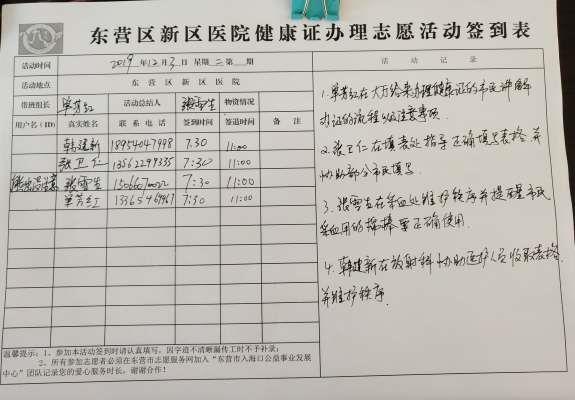 东营区新区医院健康证办理志愿活动签到表
活动时间 2019年12月3日 星期二第 期 活动记录
活动地点 东营区新区医院
带班组长 单芳红 活动总结人 张雪生 物资情况
用户名(ID) 真实姓名 联系电话 签到时间 签退时间 备注
韩建新 18954047998 7:30 11:00
张卫仁 13562299335 7:30 11:00
张雪生 7:30 11:00
单芳红 13365469467 7:30 11:00
1.单芳红在大厅给来办理健康证的市民讲解
办证的流程以及注意事项.
2.张卫仁在填表处指导正确填写表格,并
协助部分市民填写.
3.张雪生在采血处维护秩序并提醒市民
采血用的棉棒要正确使用.
4.韩建新在放射科协助医护人员收取表格
并维护秩序.
温馨提示:1、参加本活动签到时请认真填写,因字迹不清晰漏传工时不予补录;
2、所有参加志愿者必须在东营市志愿服务网加入“东营市入海口公益事业发展
中心”团队记录您的爱心服务时长,谢谢合作!